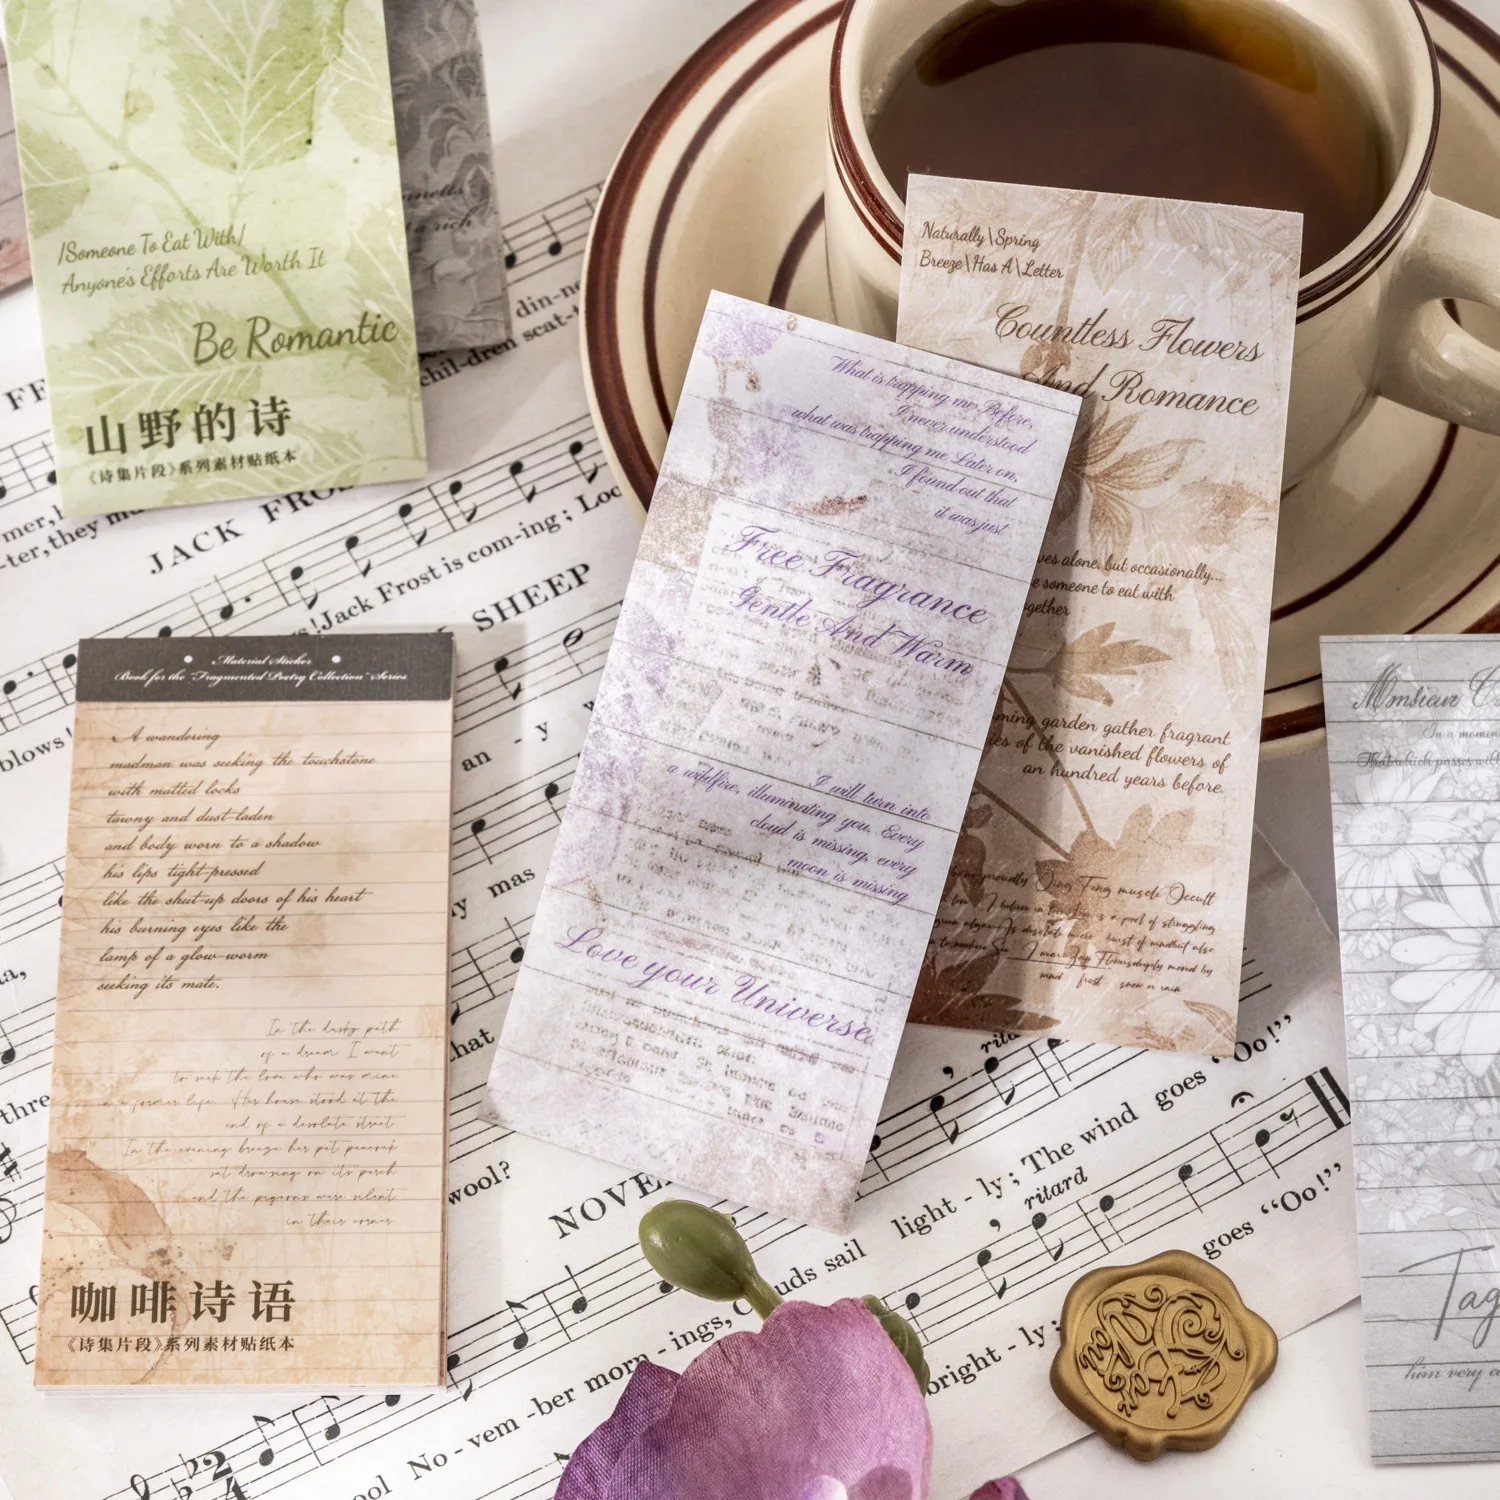 /Someone To Eat With/
Anyone's Efforts Are Worth It
Be Romantic
山野的诗
《诗集片段》系列素材贴纸本
a rich
din-ne
chil-dren scat-t
JACK FROS
mer,
-ter, they
's! Jack Frost is com-ing; Loo
SHEEP
blows!
an - y w
y mas
that
thre
wool?
Material Sticker
Book for the "Fragmented Poetry Collection" Series
A wandering
madman was seeking the touchstone
with matted locks
tawny and dust-laden
and body worn to a shadow
his lips tight-pressed
like the shut-up doors of his heart
his burning eyes like the
lamp of a glow-worm
seeking its mate.
In the dusky path
of a dream I went
to seek the love who was mine
in a former life. Her house stood at the
end of a desolate street.
In the evening breeze her pet peacock
sat drowsing on its perch
and the pigeons were silent
in their corner.
咖啡诗语
《诗集片段》系列素材贴纸本
What is trapping me Before,
I never understood
what was trapping me Later on,
I found out that
it was just
Free Fragrance
Gentle And Warm
I will turn into
a wildfire, illuminating you. Every
cloud is missing, every
moon is missing
Love your Universe
Naturally\Spring
Breeze\Has A\Letter
Countless Flowers
And Romance
ves alone, but occasionally...
e someone to eat with
gether
ming garden gather fragrant
ies of the vanished flowers of
an hundred years before.
proudly
muscle Occult
is a pool of struggling
moved by
wind frost snow or rain
Monsieur
In a momen
That which passes wil
Tag
him very
NOVE
rita
goes "Oo!"
light - ly; The wind goes "Oo!"
ritard
ouds sail
No - vem -ber morn - ings, C
bright - ly;
ool
2
4